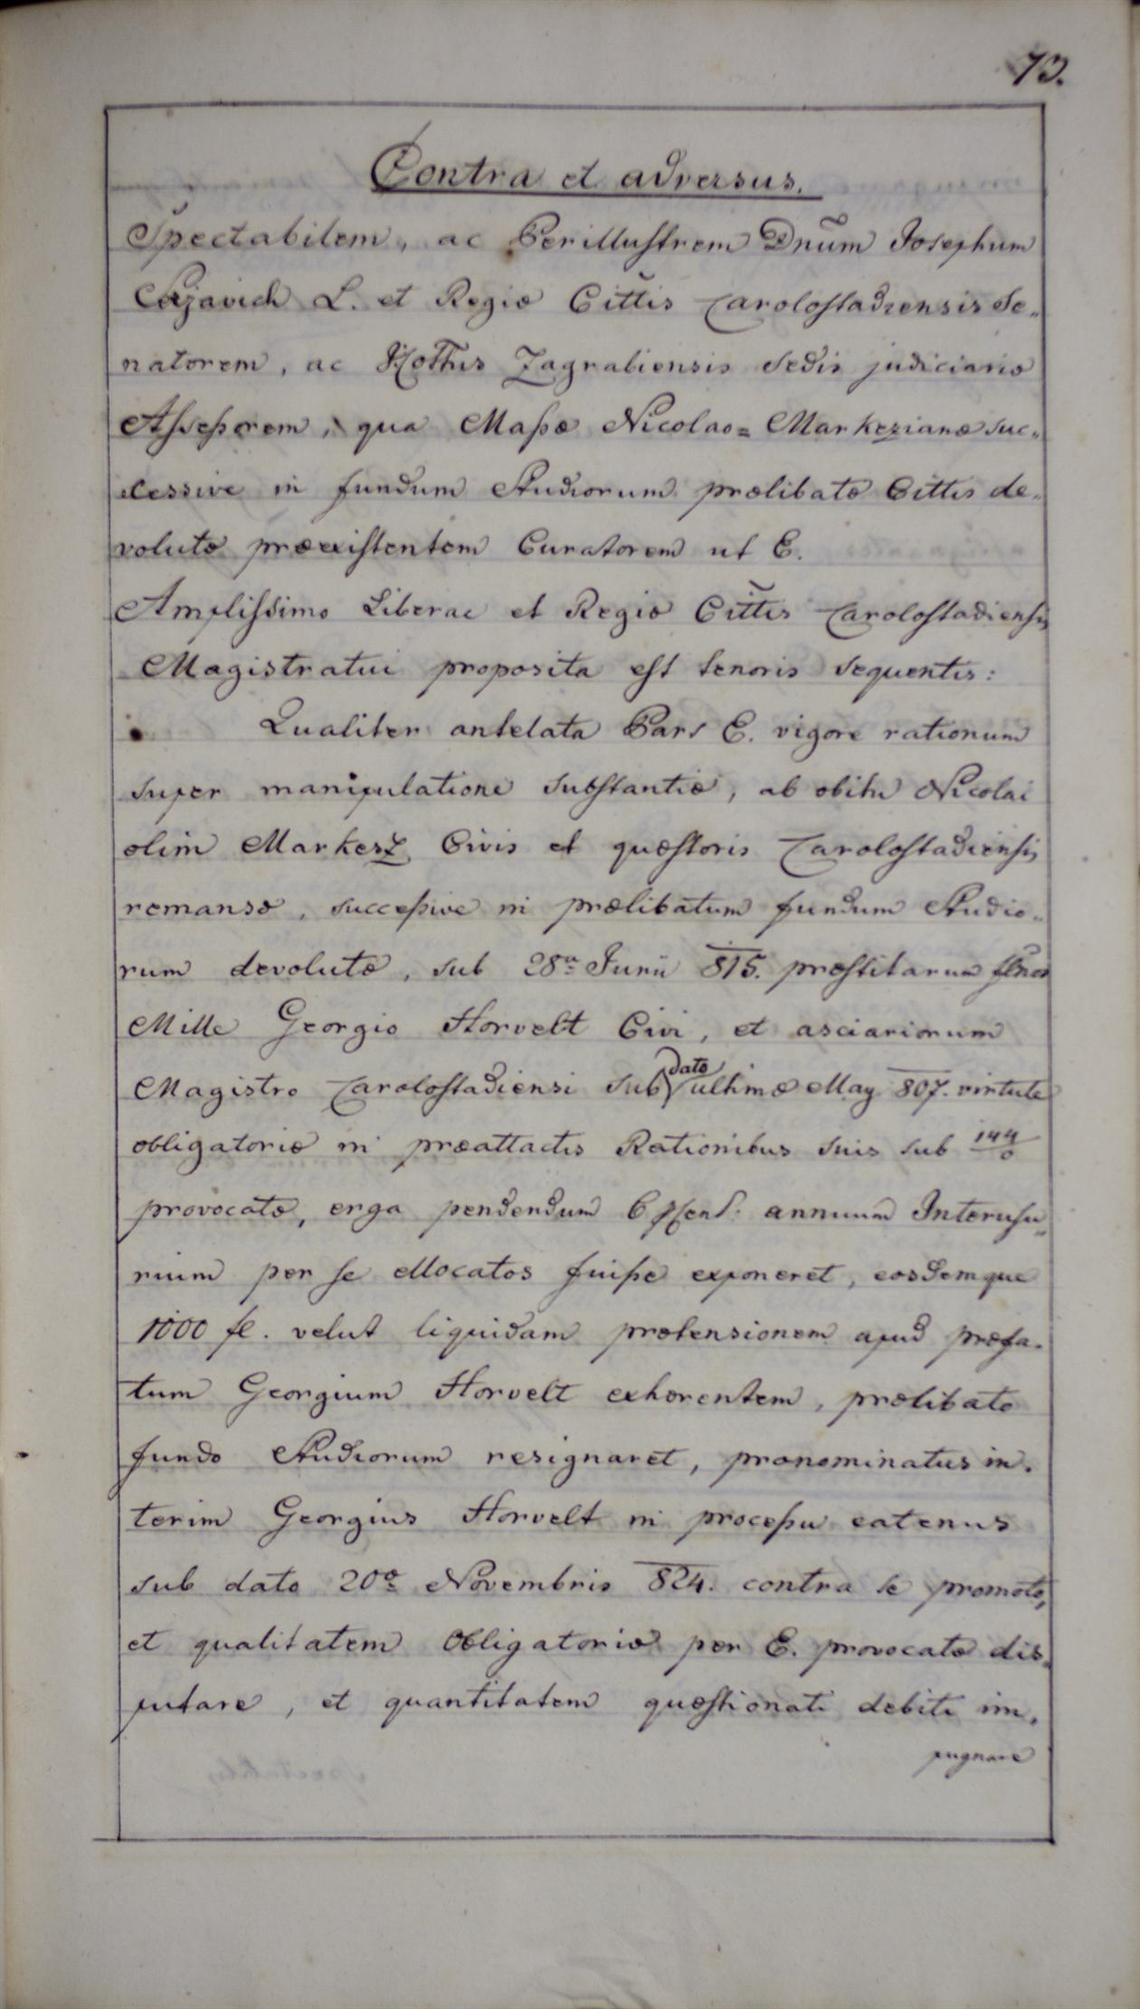 73.
Contra et adversus.
Spectabilem, ac Perillustrem Dnũm Josephum
L. et Regiæ Cittis Carolostadiensis Se„
natorem, ac Zagrabiensis Sedis judiciariæ
Assessorem, qua Massæ Nicolao= Markezianæ suc„
cessive in fundum Studiorum prælibatæ Cittis de„
volutæ præexistentem Curatorem ut E.
Amplissimo Liberae et Regiæ Cittis Carolostadiensis
Magistratui proposita est tenoris sequentis:
Qualiter antelata Pars E. vigore rationum
super manipulatione substantiæ, ab obitu Nicolai
olim Markesz Civis et quæstoris Carolostadiensis
remansæ, successive in prælibatum fundum Studio„
rum devolutæ, sub 28a Junii 815. præstitarum flnos
Mille Georgio Horvelt Civi, et asciariorum
Magistro Carolostadiensi sub dato ultimæ May 807. virtute
obligatoriæ in præattactis Rationibus suis sub 144/0
provocatæ, erga pendendum 6 annuum Interusu„
rium per se ellocatos fuisse exponeret, eosdemque
1000 fl. velut liquidam prætensionem apud præfa„
tum Georgium Horvelt exhærentem, prælibato
fundo Studiorum resignaret, prænominatus in„
terim Georgius Horvelt in processu eatenus
sub dato 20a Novembris 824. contra se promoto,
et qualitatem Obligatoriæ per E. provocatæ dis„
putare, et quantitatem quæstionati debiti im„
pugnare